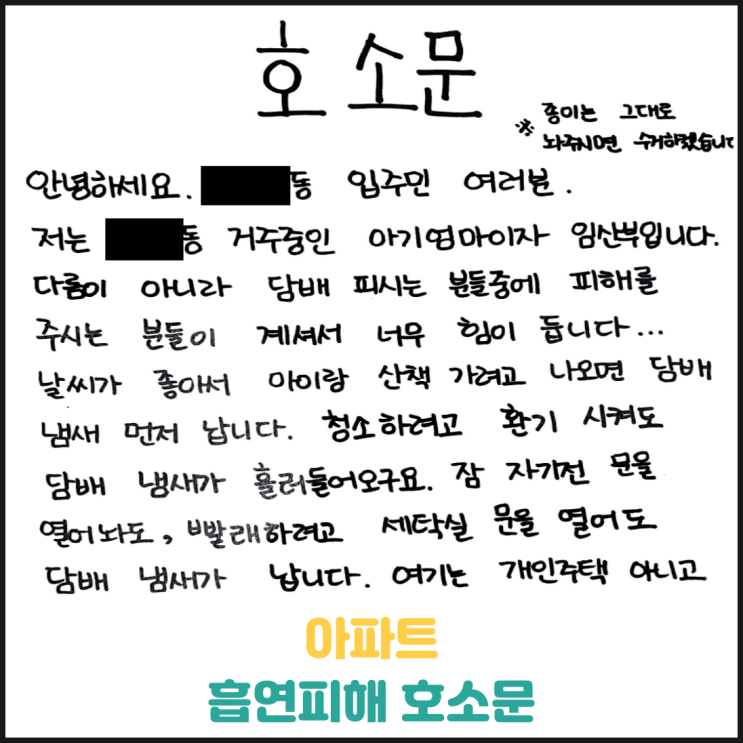 호소문
※ 종이는 그대로
놔주시면 수거하겠습니다
안녕하세요. 동 입주민 여러분.
저는 동 거주중인 아기엄마이자 임산부입니다.
다름이 아니라 담배 피시는 분들중에 피해를
주시는 분들이 계셔서 너무 힘이 듭니다...
날씨가 좋아서 아이랑 산책 가려고 나오면 담배
냄새 먼저 납니다. 청소하려고 환기 시켜도
담배 냄새가 흘러들어오구요. 잠 자기전 문을
열어놔도, 빨래하려고 세탁실 문을 열어도
담배 냄새가 납니다. 여기는 개인주택 아니고
아파트
흡연피해 호소문